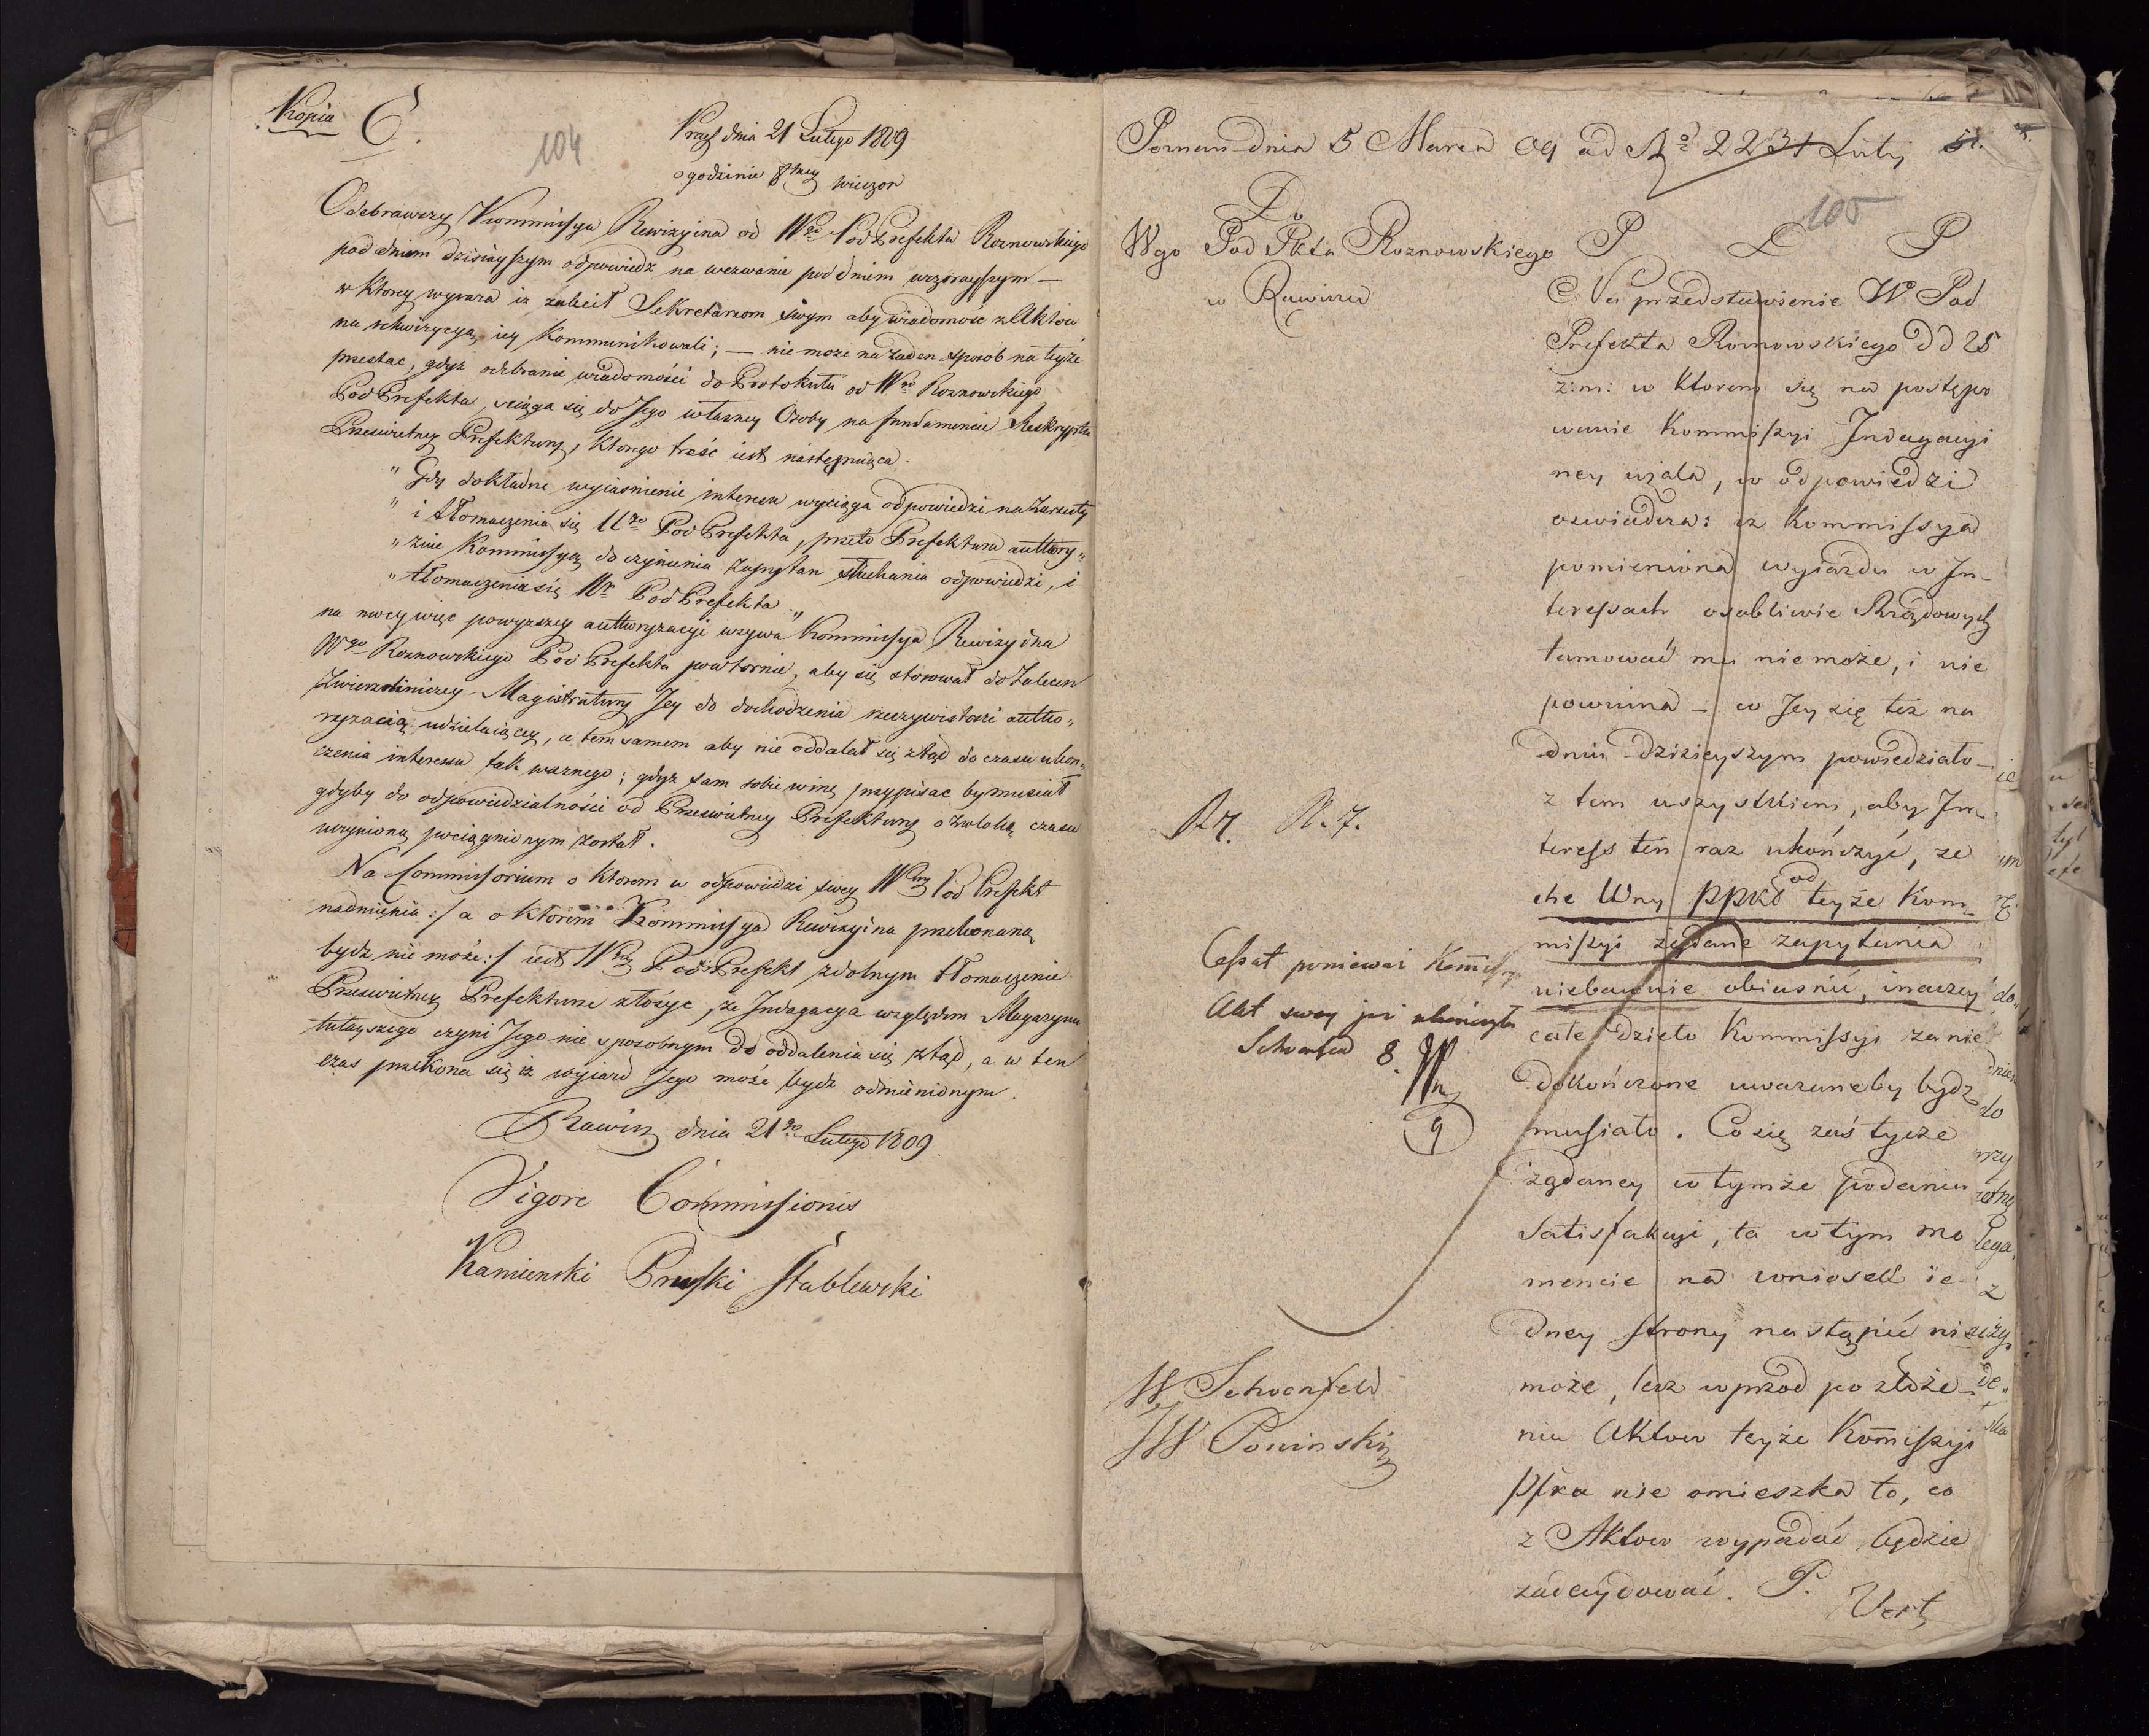 Kopia C.
104
Praes dnia 21 Lutego 1809
o godzinie 8mey wieczor
Odebrawszy Kommissya Rewizyina od Wgo PodPrefekta Roznowskiego
pod dniem dzisiayszym odpowiedz na wezwanie pod dniem wczorayszym —
w ktorey wyraza iz zalecił Sekretarzom swym aby wiadomość z Aktów
na rekwizycyą iey kommunikowali; — nie moze na zaden sposob na teyże
przestac, gdyż odebranie wiadomości do Protokułu od Wgo Roznowskiego
PodPrefekta, sciąga się do Jego własney Osoby na fundamencie Reskryptu
Przeswietney Prefektury, ktorego treść iest następuiąca.
" Gdy dokładne wyiasnienie interesu wyciąga odpowiedzi na zarzuty
" i tłomaczenia się Ur. PodPrefekta, przeto Prefektura authory„
" zuie Kommissyą do czynienia zapytan słuchania odpowiedzi, i
" tłomaczenia się Wo PodPrefekta."
na mocy więc powyzszey authoryzacyi wzywa Kommissya Rewizyina
Wgo Roznowskiego PodPrefekta powtornie, aby się stosował do Zalecen
Zwierzchniczey Magistratury Jey do dochodzenia rzeczywistosci autho„
ryzacią udzielaiącey, a tem samem aby nie oddalał się ztąd do czasu ukon„
czenia interessu tak waznego; gdyz sam sobie winę przypisac by musiał
gdyby do odpowiedzialności od Przeswietney Prefektury o zwłokę czasu
uczynioną pociągnionym został.
Na Commissorium o ktorem w odpowiedzi swey Wny PodPrefekt
nadmienia :/ a o ktorem Kommissya Rewizyina przekonaną
bydz nie może :/ iest Wny PodPrefekt zdolnym tłomaczenie
Przeswietney Prefekturze złożyc, że Indagacya względem Magazynu
tutayszego czyni Jego nie sposobnym do oddalenia się ztąd, a w ten
czas przekona się iz wyiazd Jego może bydz odmienionym.
Rawicz dnia 21go Lutego 1809.
Vigore Commissionis
Kamienski Pruski Stablewski
Poznan dnia 5 Marca 09 ad No 2231 Luty
105
Do
Wgo Pod Pkta Roznowskiego
w Rawiczu
P L P
Na przedstawienie W. Pod
Prefekta Roznowskiego dd 25
z: m: w ktorem się na postępo
wanie Kommissyi Indagacyi
ney użala, w odpowiedzi
oswiadcza: iz Kommissya
pomieniona wyiazdu w In-
teressach osobliwie Rządowych
tamować mu nie może, i nie
powinna — co Jey się też na
dniu dzisieyszym powiedziało —
z tem wszystkiem, aby In-
teress ten raz ukończyć, ze
che Wny ppkt od teyże Kom-
missyi zadane zapytania
niebawnie obiasnić, inaczey
całe dzieło Kommissyi za nie
dokończone uwazaneby bydz
musiało. Co się zaś tycze
żądaney w tymże podaniu
Satisfakcyi, ta w tym mo
mencie na wniosek ie-
dney strony nastąpić nie
może, lecz wprzod po złoże-
niu Aktow teyże Kom̄issyi
Pfra nie omieszka to, co
z Aktow wypadać będzie
zadecydować. P.
Vert
N. 7.
Cessat poniewaz Kom̄issya
Akt swoy już ukończyła
Schoenfeld 8.
9
W Schoenfeld
JW Poninski